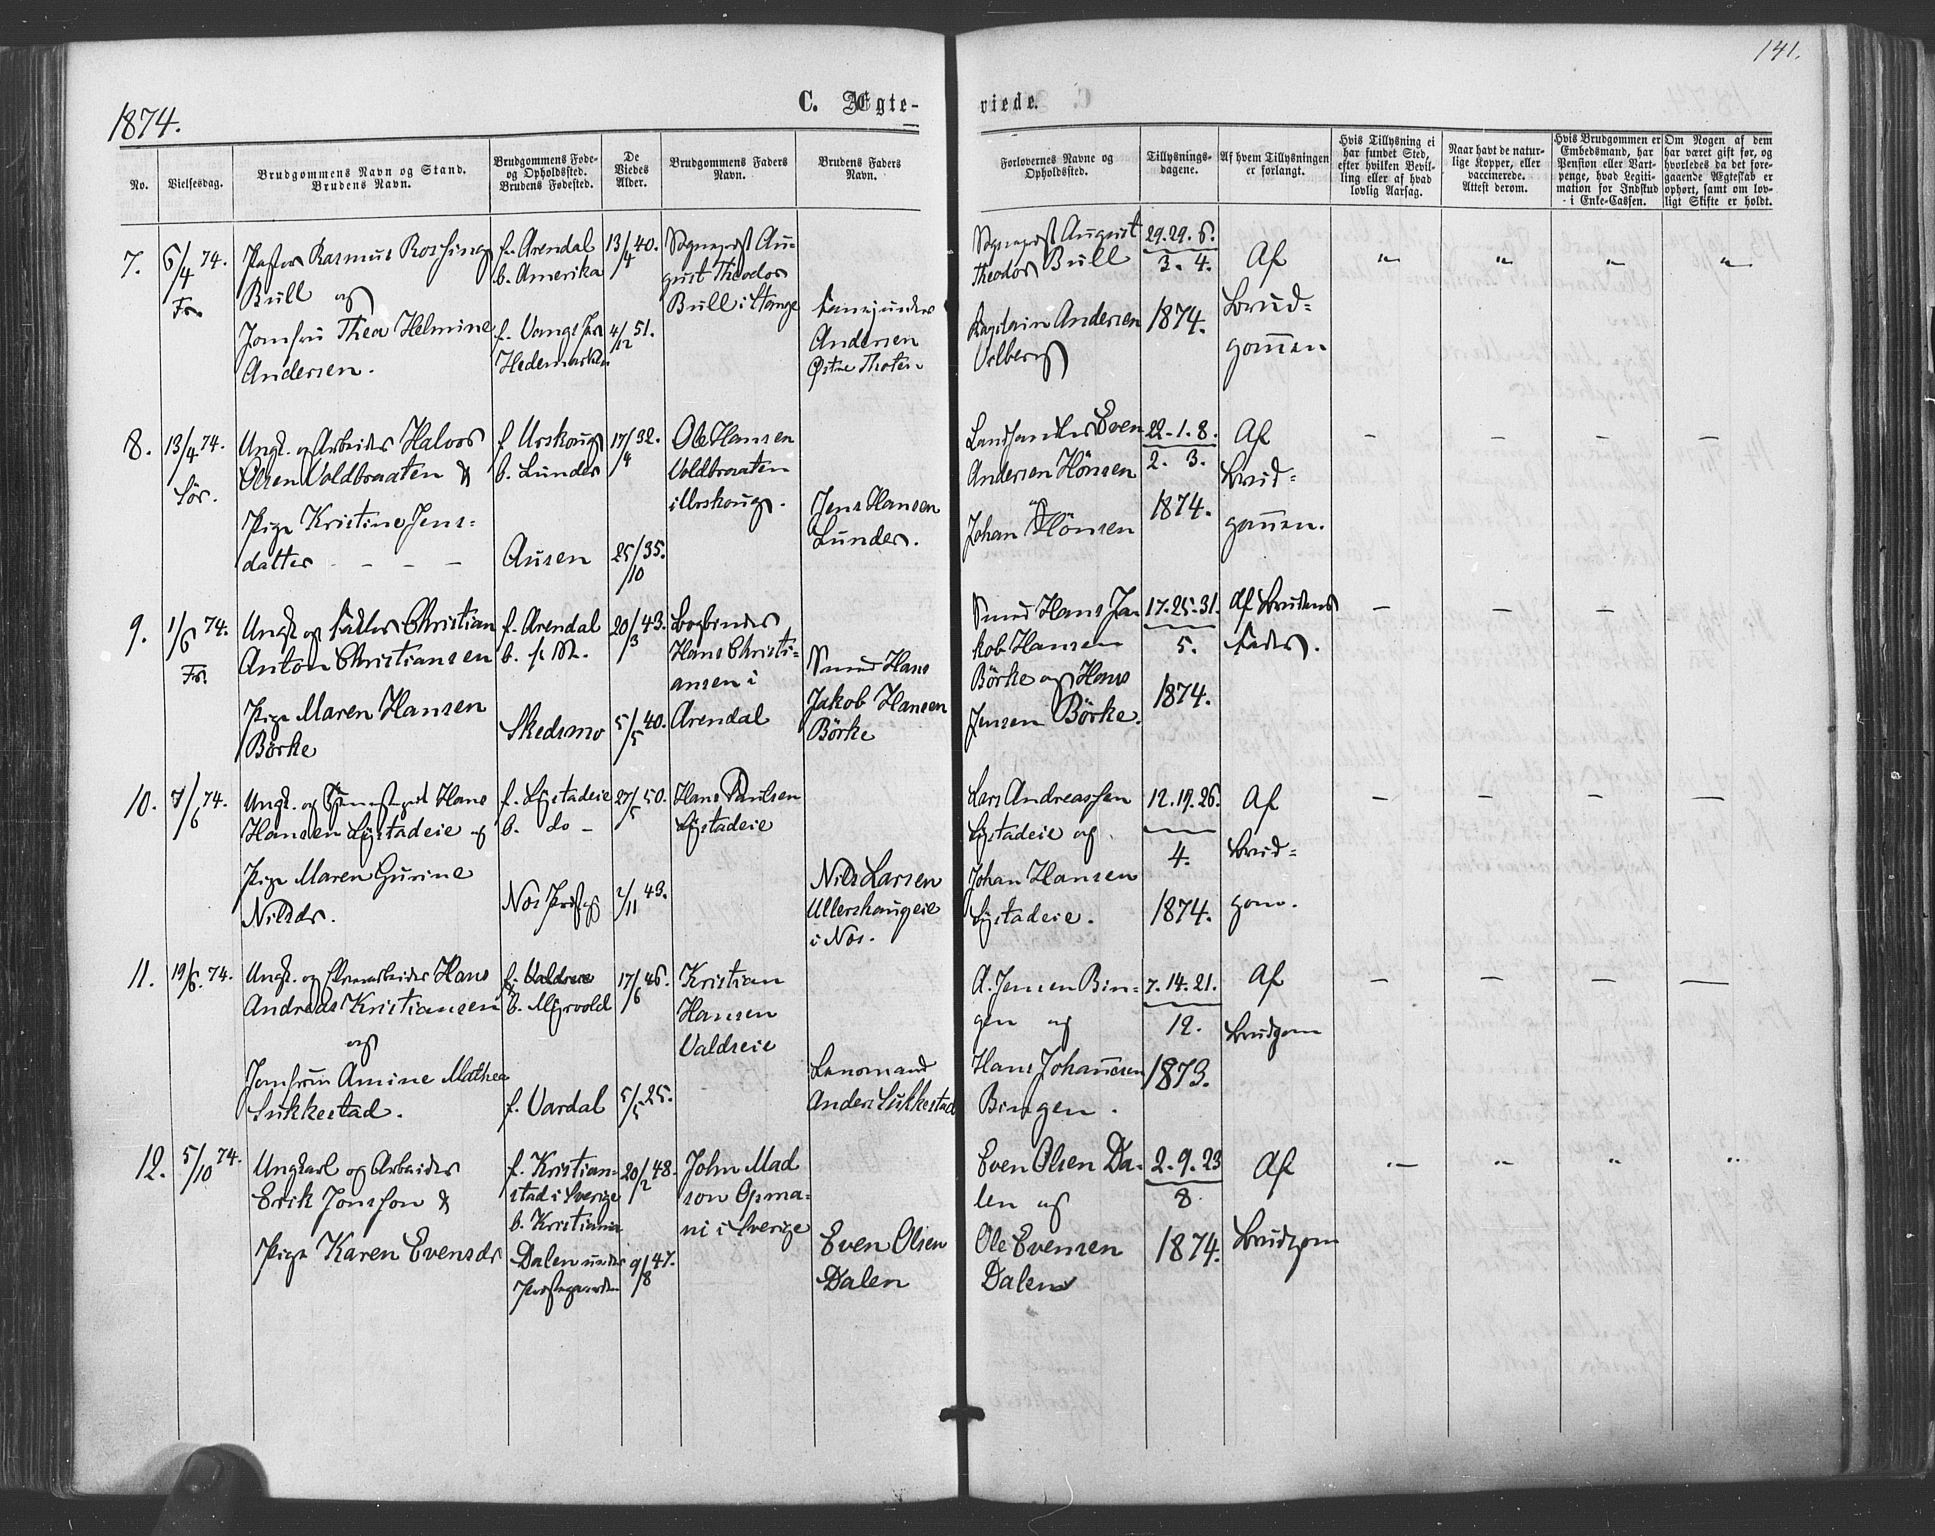 141.
1874.
C. Ægte-
viede.
No.
Vielsesdag.
Brudgommens Navn og Stand.
Brudens Navn.
Brudgommens Føde-
og Opholdssted.
Brudens Fødested.
De
Viedes
Alder.
Brudgommens Faders
Navn.
Brudens Faders
Navn.
Forlovernes Navne og
Opholdssted.
Tillysnings-
dagene.
Af hvem Tillysningen
er forlangt.
Hvis Tillysning ei
har fundet Sted,
efter hvilken Bevil-
ling eller af hvad
lovlig Aarsag.
Naar havt de natur-
lige Kopper, eller
vaccinerede.
Attest derom.
Hvis Brudgommen er
Embedsmand, har
Pension eller Vart-
penge, hvad Legiti-
mation for Indskud
i Enke-Cassen.
Om Nogen af dem
har været gift før, og
hvorledes da det fore-
gaaende Ægteskab er
ophørt, samt om lov-
ligt Skifte er holdt.
7.
6/4 74.
Fr.
Pastor Rasmus Rossing
Bull og
Jomfru Thea Helmine
Andersen.
f. Arendal
b. Amerika
f. Vangs Pr.
Hedemarken
13/4 40.
4/12 51.
Sognepræst Au-
gust Theodor
Bull i Stange
Andersen
Østre Thoten
Sognepræst August
Theodor Bull
Kapitain Andersen
29. 29. 6.
3. 4.
1874.
Af
Brud-
gommen
" " " "
8.
13/4 74.
Lör.
Ungk. og Arbeider Halvor
Olsen Voldbraaten &
Pige Kristine Jens-
datter - - - -
f. Urskoug
b. Lunder
Ausen
17/4 32.
25/10 35.
Ole Hansen
Voldbraaten
i Urskoug.
Jens Hansen
Lunder.
Landhandler Even
Andersen Hönsen
og
Johan Hönsen
22. 1. 8.
2. 3.
1874.
Af
Brud-
gommen.
- - - -
9.
1/6 74.
Fr.
Ungk. og Christian
Anton Christiansen
Pige Maren Hansen
Börke
f. Arendal
b.
Skedsmo
20/3 43.
5/5 40.
Bogbinder
Hans Christi-
ansen i
Arendal
Smed Hans
Jakob Hansen
Börke
Smed Hans Ja-
kob Hansen
Börke og Hans
Jensen Börke.
17. 25. 31.
5.
1874.
Af Brudens
Fader.
- - -
10.
7/6 74.
Ungk. og Hans
Hansen Lystadeie og
Pige Maren Gurine
Nilsdr.
f. Lystadeie
b. do -
Nes Præstegj
27/5 50.
2/11 43.
Hans Paulsen
Lystadeie
Nils Larsen
Ullershougeie
i Nes.
Lars Andreassen
Lystadeie og
Johan Hansen
Lystadeie.
12. 19. 26.
4.
1874.
Af
Brud-
gom.
- - - -
11.
19/6. 74.
Ungk. og Hans
Andreas Kristiansen
og
Jomfru Amine Mathea
Sukkestad.
f. Valdreie
b. Myrvold
f. Vardal
17/6 46.
5/5 25.
Kristian
Hansen
Valdreie
Lensmand
Anders Sukkestad
A. Jensen Bin-
gen og
Hans Johannesen
Bingen.
7. 14. 21.
12.
1873.
Af
Brudgom
- - - -
12.
5/10 74.
Ungkarl og Arbeider
Erik Jonsson &
Pige Karen Evensdr
f. Kristian-
stad i Sverige
b. Kristiania
Dalen under
Præstegaarden
20/2 48.
9/8 47.
John Mad
son Opma-
ni i Sverige
Even Olsen
Dalen
Even Olsen Da-
len og
Ole Evensen
Dalen
2. 9. 23
8
1874.
Af
Brudgom
- " " "